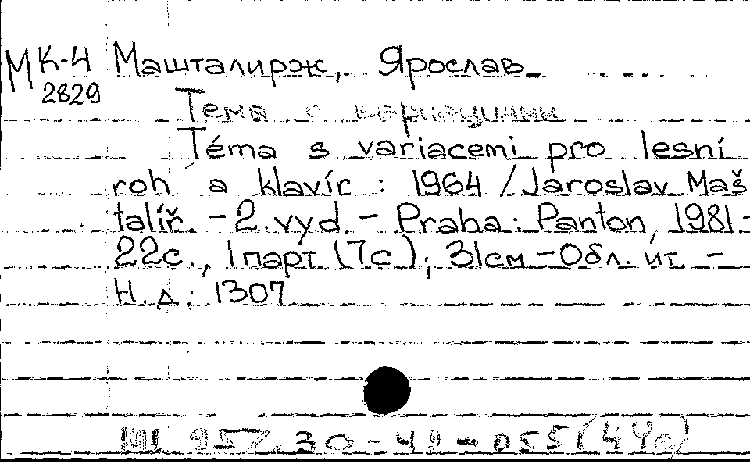 МК-4 Машталирж, Ярослав
2829
Тема с вариациями
Téma s variacemi pro lesní
roh a klavír : 1964 / Jaroslav Maš
talíř. - 2. vyd. - Praha : Panton, 1981 -
22с., 1 парт. (7с); 31см - Обл. ит. -
Н. д. : 1307